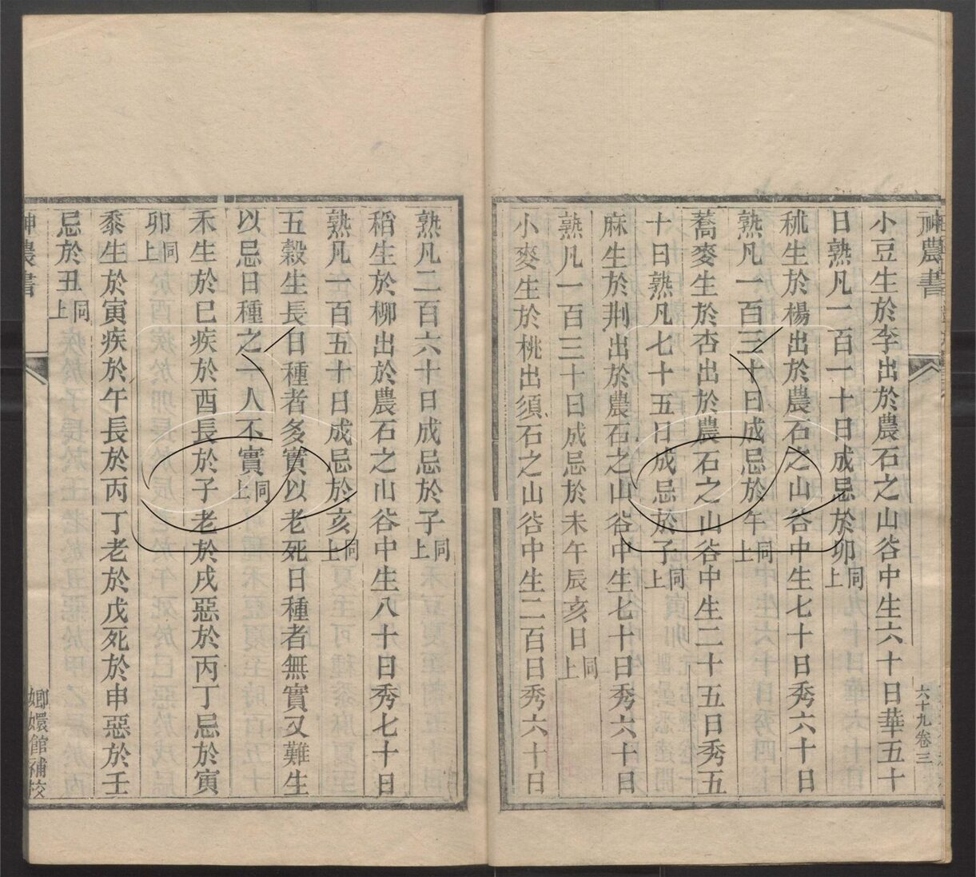 神農書
六十九卷三
小豆生於李出於農石之山谷中生六十日華五十
日熟凡一百一十日成忌於卯同上
秫生於楊出於農石之山谷中生七十日秀六十日
熟凡一百三十日成忌於午同上
蕎麥生於杏出於農石之山谷中生二十五日秀五
十日熟凡七十五日成忌於子同上
麻生於荆出於農石之山谷中生七十日秀六十日
熟凡一百三十日成忌於未午辰亥日同上
小麥生於桃出須石之山谷中生二百日秀六十日
熟凡二百六十日成忌於子同上
稻生於柳出於農石之山谷中生八十日秀七十日
熟凡一百五十日成忌於亥同上
五穀生長日種者多實以老死日種者無實又難生
以忌日種之一人不實同上
禾生於巳疾於酉長於子老於戌惡於丙丁忌於寅
卯同上
黍生於寅疾於午長於丙丁老於戊死於申惡於壬
忌於丑同上
神農書
嫏嬛館補校